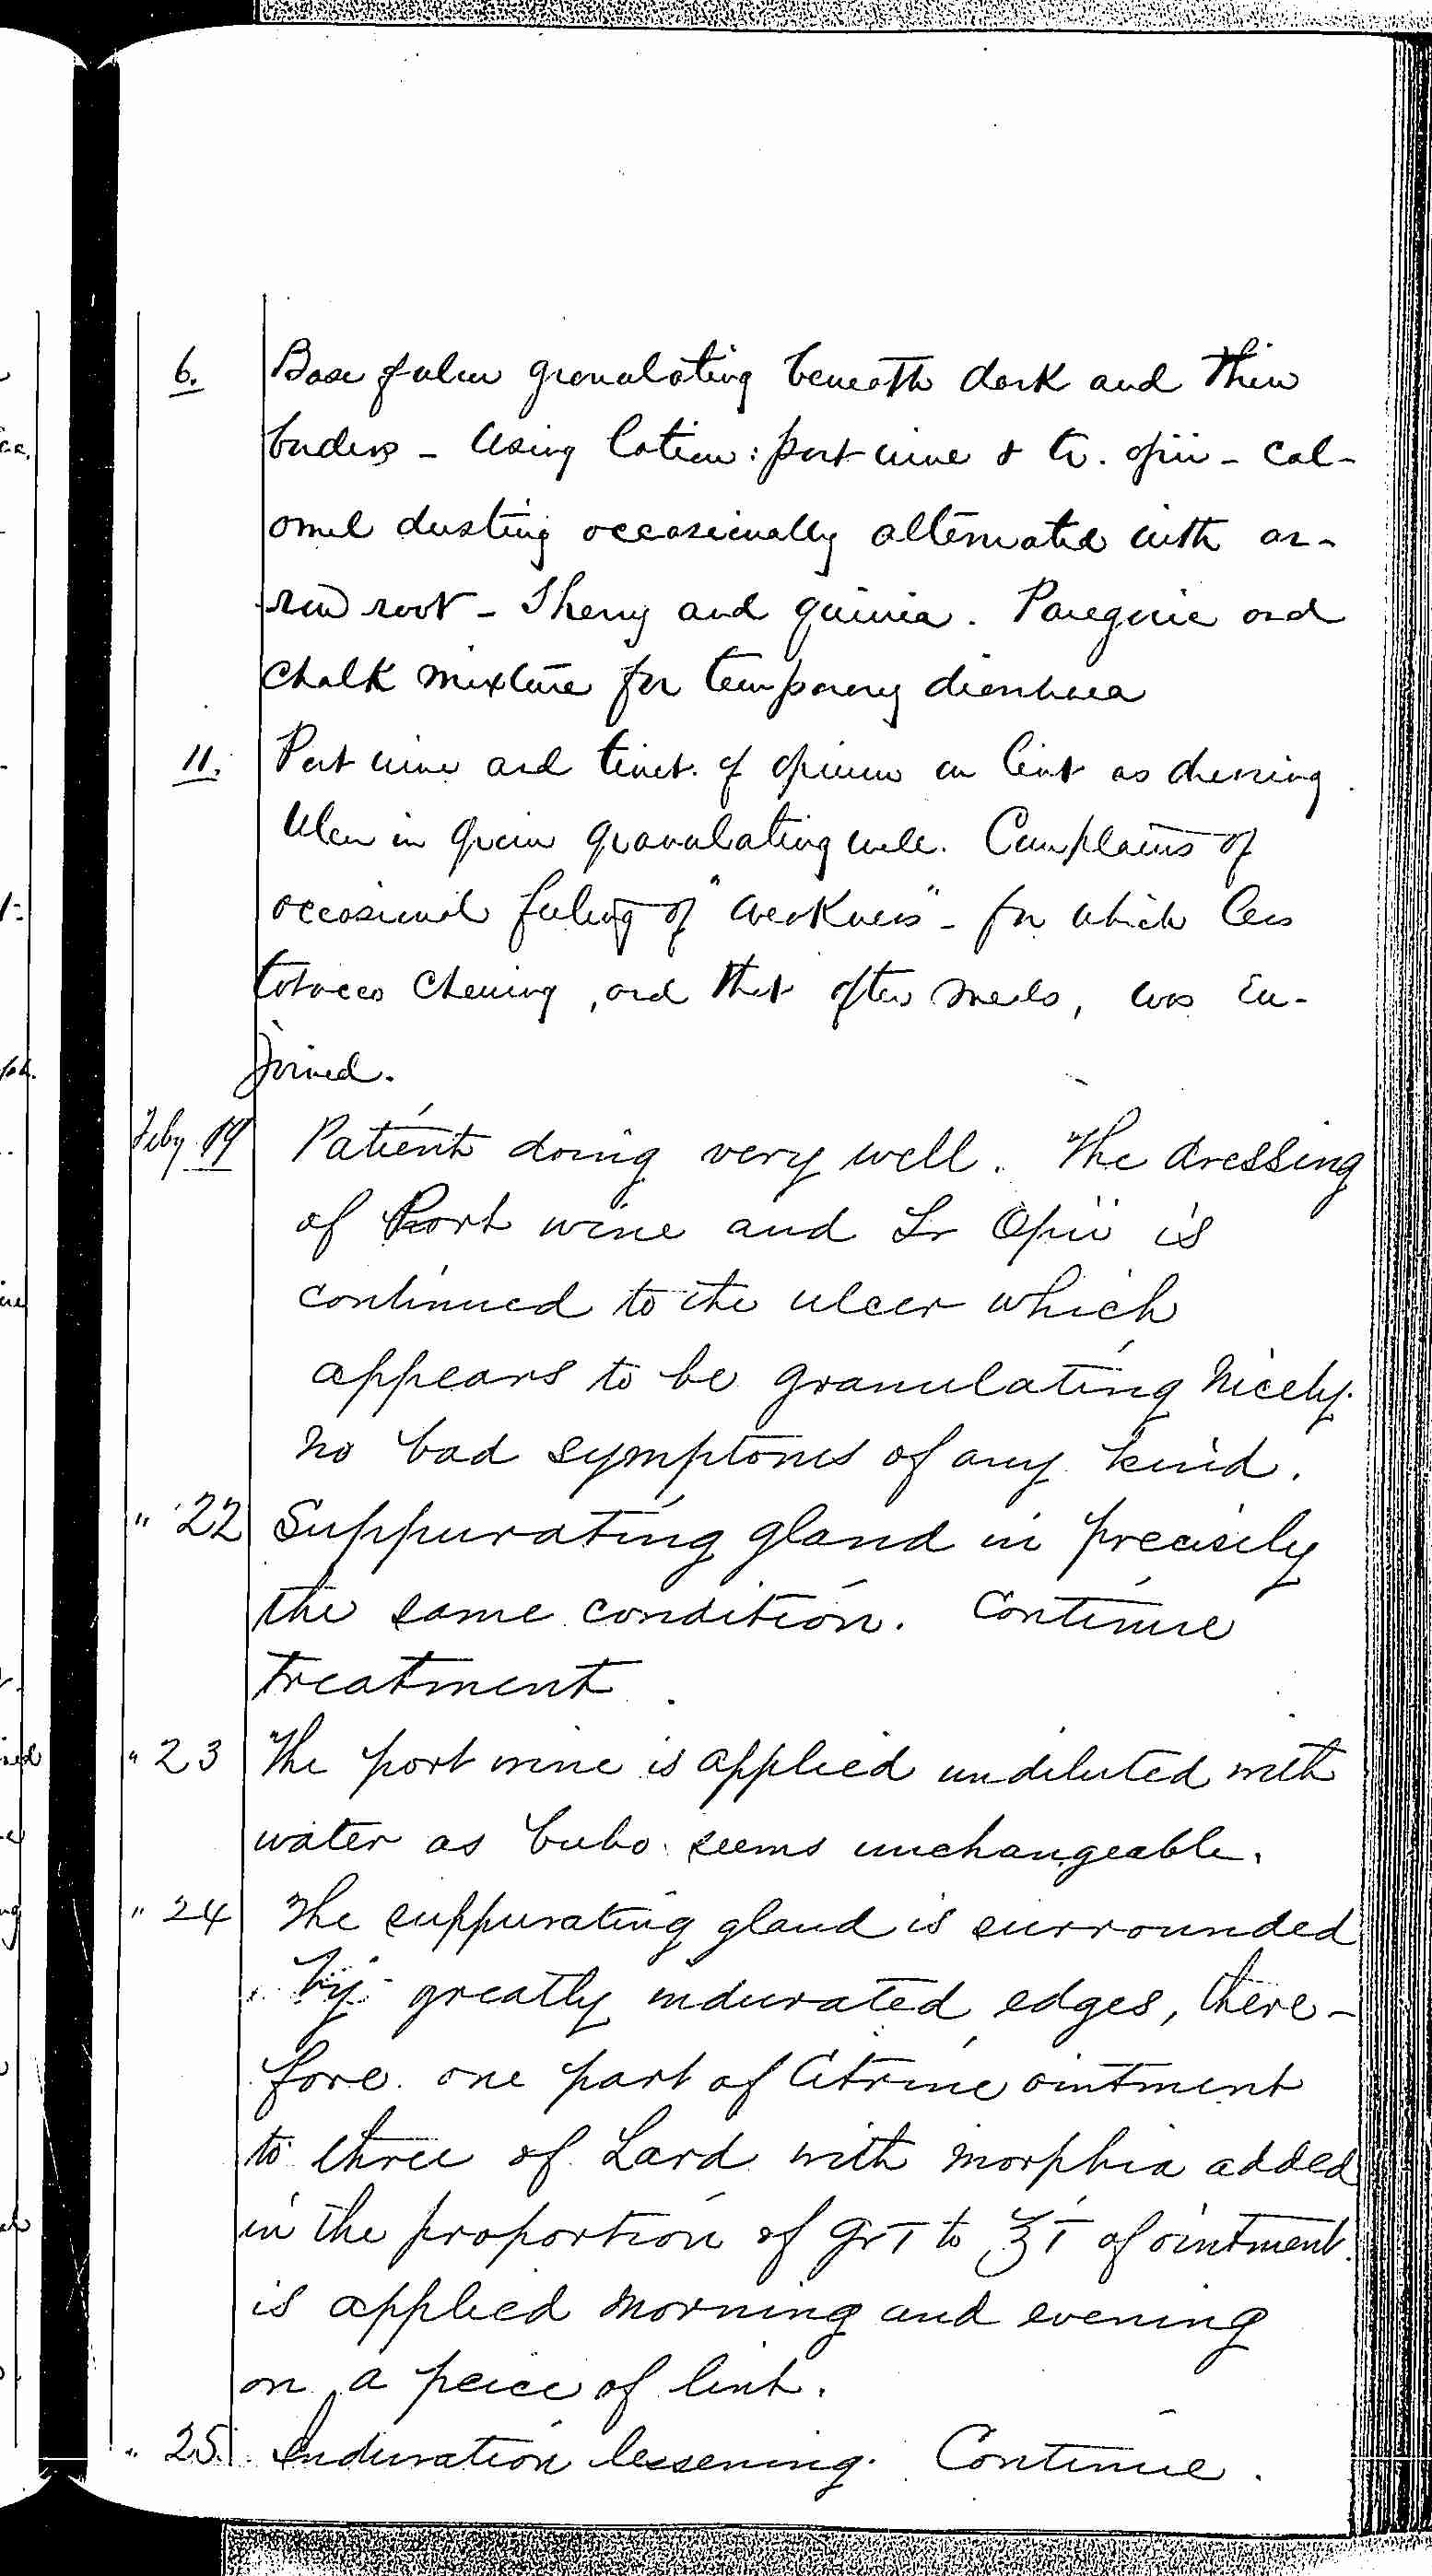 6. Base of ulcer granulating beneath dark and thin
borders - Using lotion: port wine & tr. opii - cal-
omel dusting occasionally alternated with ar-
row root - Sherry and quinia. Paregoric and
chalk mixture for temporary diarrhoea
11. Port wine and tinct. of opium on lint as dressing.
Ulcer in groin granulating well. Complains of
occasional feeling of "weakness" - for which less
tobacco chewing, and that after meals, was en-
joined.
Feby 19 Patient doing very well. The dressing
of Port wine and Tr Opii is
continued to the ulcer which
appears to be granulating nicely.
no bad symptoms of any kind.
" 22 Suppurating gland in precisely
the same condition. Continue
treatment.
" 23 The port wine is applied undiluted with
water as bubo seems unchangeable.
" 24 The suppurating gland is surrounded
by greatly indurated edges, there-
fore one part of Citrine ointment
to three of Lard with morphia added
in the proportion of gr i to ʒ i of ointment.
is applied morning and evening
on a peice of lint.
" 25. Induration lessening. Continue.